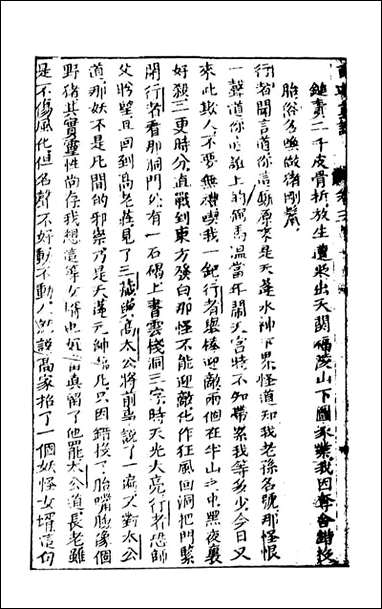 鎚責二千皮骨折放生遭貶出天関福陵山下圖家業我因奪舍錯投
胎俗名喚做猪剛鬣
行者聞言道你這厮原來是天蓬水神下界怪道知我老孫名號那怪恨
一聲道你這誑上的弼馬温當年閙天宫時不知帶累我等多少今日又
來此欺人不要無禮喫我一鈀行者舉棒迎敵兩個在半山之中黑夜裏
好殺二更時分直戰到東方發白那怪不能迎敵化作狂風回洞把門緊
閉行者看那洞門外有一石碣上書雲棧洞三字時天光大亮行者恐師
父盼望且回到高老莊見了三藏與高太公將前事說了一遍又對太公
道那妖不是凡間的邪祟乃是天蓬元帥臨凡只因錯投了胎嘴臉像個
野猪其實靈性尚存我想這等女婿也好
真留了他罷太公道長老雖
是不傷風化但名聲不好動不動人就説高家招了一個妖怪女壻這句